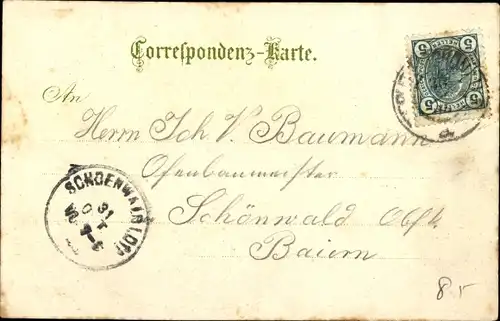 Correspondenz-Karte.
An
Herrn Joh V. Baumann
Ofenbaumeister
Schönwald Obfr.
Baiern
SCHOENWALD
31
OCT
7-8
5 5
5 5
8.5